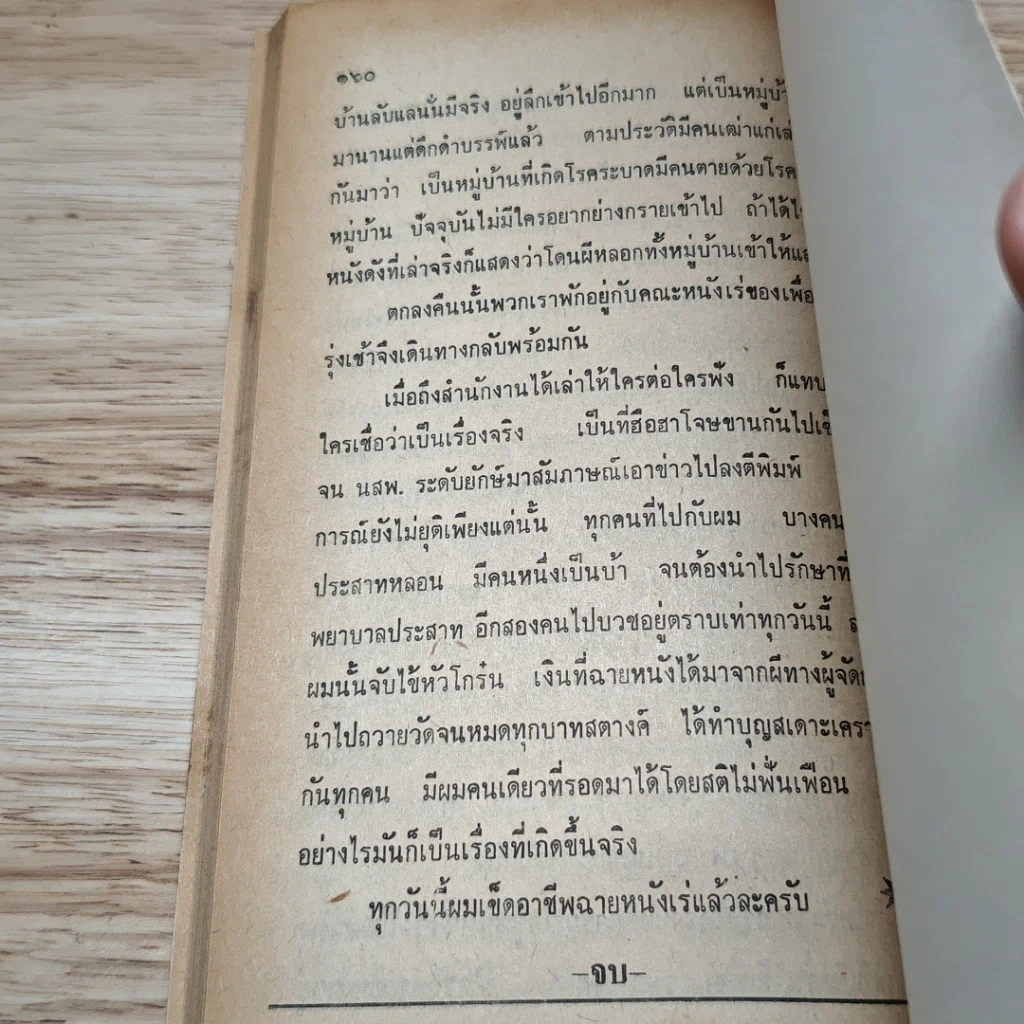 ๑๖๐
บ้านลับแลนั่นมีจริง อยู่ลึกเข้าไปอีกมาก แต่เป็นหมู่บ้า
มานานแต่ดึกดำบรรพ์แล้ว ตามประวัติมีคนเฒ่าแก่เล่
กันมาว่า เป็นหมู่บ้านที่เกิดโรคระบาดมีคนตายด้วยโรค
หมู่บ้าน ปัจจุบันไม่มีใครอยากย่างกรายเข้าไป ถ้าได้ไ
หนังดังที่เล่าจริงก็แสดงว่าโดนผีหลอกทั้งหมู่บ้านเข้าให้แล
ตกลงคืนนั้นพวกเราพักอยู่กับคณะหนังเร่ของเพื่อ
รุ่งเช้าจึงเดินทางกลับพร้อมกัน
เมื่อถึงสำนักงานได้เล่าให้ใครต่อใครฟัง ก็แทบ
ใครเชื่อว่าเป็นเรื่องจริง เป็นที่ฮือฮาโจษขานกันไป
จน นสพ. ระดับยักษ์มาสัมภาษณ์เอาข่าวไปลงตีพิมพ์
การณ์ยังไม่ยุติเพียงแต่นั้น ทุกคนที่ไปกับผม บางคน
ประสาทหลอน มีคนหนึ่งเป็นบ้า จนต้องนำไปรักษาที่
พยาบาลประสาท อีกสองคนไปบวชอยู่ตราบเท่าทุกวันนี้
ผมนั้นจับไข้หัวโกร๋น เงินที่ฉายหนังได้มาจากผีทางผู้จัด
นำไปถวายวัดจนหมดทุกบาทสตางค์ ได้ทำบุญสเดาะเครา
กันทุกคน มีผมคนเดียวที่รอดมาได้โดยสติไม่ฟั่นเฟือน
อย่างไรมันก็เป็นเรื่องที่เกิดขึ้นจริง
ทุกวันนี้ผมเข็ดอาชีพฉายหนังเร่แล้วละครับ
–จบ–